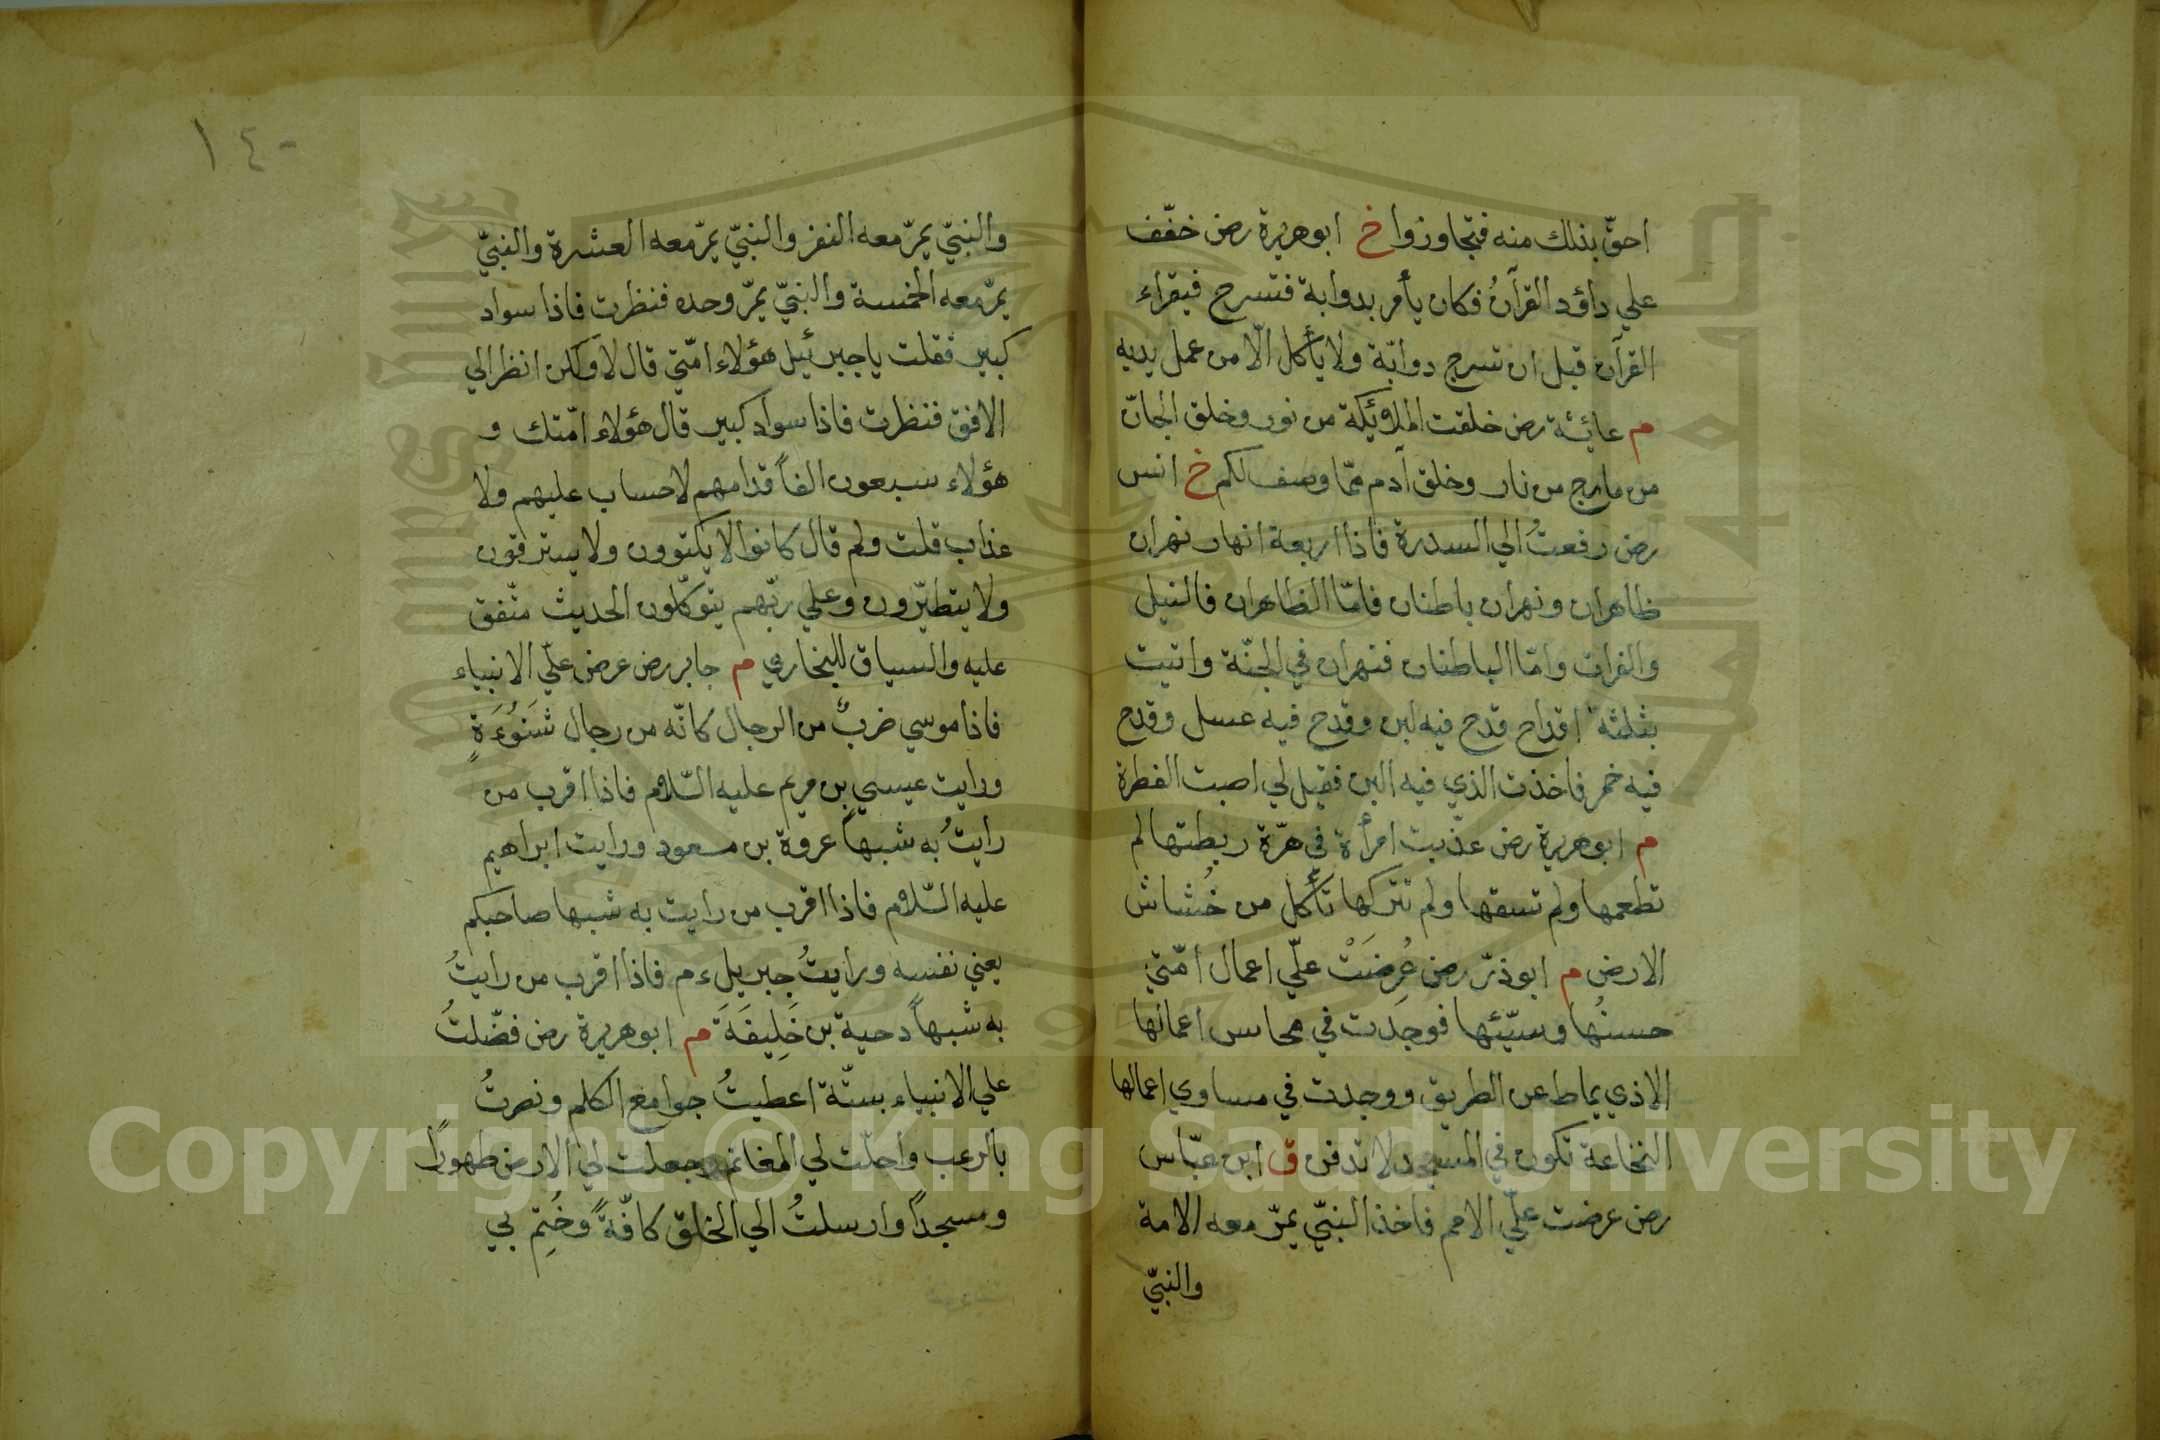 احقّ بذلك منه فتجاوزوا خ ابو هريرة رض خفّف
علي داؤد القرآنُ فكان يأمر بدوابة فتسرج فيقراء
القرآن قبل ان تسرج دوابّة ولا يأكل الّا من عمل يديه
م عائشة رض خلقت الملائيكة من نور وخلق الجانّ
من مارج من نار وخلق آدم ممّا وصف لكم خ انس
رض رفعتُ الي السدرة فاذا اربعة انهار نهران
ظاهران ونهران باطنان فامّا الظاهران فالنيل
والفرات وامّا الباطنان فنهران في الجنّة واتيت
بثلثة اقداح قدح فيه لبن وقدح فيه عسل وقدح
فيه خمر فاخذت الذي فيه البن فقيل لي اصبت الفطرة
م ابو هريرة رض عذّبت امرأة في هرّة ربطتها لم
تطعمها ولم تسقها ولم تتركها تأكل من خُشاش
الارض م ابو ذرّ رض عُرِضَتْ علّي اعمال امّتي
حسنُها وسيّئها فوجدت في محاسن اعمالها
الاذي يماط عن الطريق ووجدت في مساوي اعمالها
النخاعة تكون في المسجد لا تدفن ق ابن عبّاس
رض عرضت علّي الامم فاخذ النبّي يمرّ معه الامة
والنبّي
١٤٠
والنبّي يمرّ معه النفر والنبّي يمرّ معه العشرة والنبّي
يمرّ معه الخمسة والنبّي يمرّ وحده فنظرت فاذا سواد
كبير فقلت يا جبرئيل هؤلاء امّتي قال لا ولكن انظر الي
الافق فنظرت فاذا سواد كبير قال هؤلاء امّتك و
هؤلاء سبعون الفاً قدامهم لا حساب عليهم ولا
عذاب قلت ولم قال كانوا لا يكتوون ولا يسترقون
ولا يتطيّرون وعلي ربّهم يتوكّلون الحديث متّفق
عليه والسياق للبخاري م جابر رض عرض علّي الانبياء
فاذا موسي ضربٌ من الرجال كانّه من رجال شَنُوْءَةٍ
ورايت عيسي بن مريم عليه السّلام فاذا اقرب من
رايتُ به شبهاً عروة بن مسعود ورايت ابراهيم
عليه السّلام فاذا اقرب من رايت به شبها صاحبكم
يعني نفسه ورايتُ جبريل ءم فاذا اقرب من رايتُ
به شبهاً دحية بن خَلِيفَةَ م ابو هريرة رض فضّلتُ
علي الانبياء بستّة اعطيتُ جوامع الكلم ونصرتُ
بالرعب واحلّت لي المغانم وجعلت لي الارض طهوراً
ومسجداً وارسلتُ الي الخلق كافّةً وخُتِم بي
Copyright © King Saud University